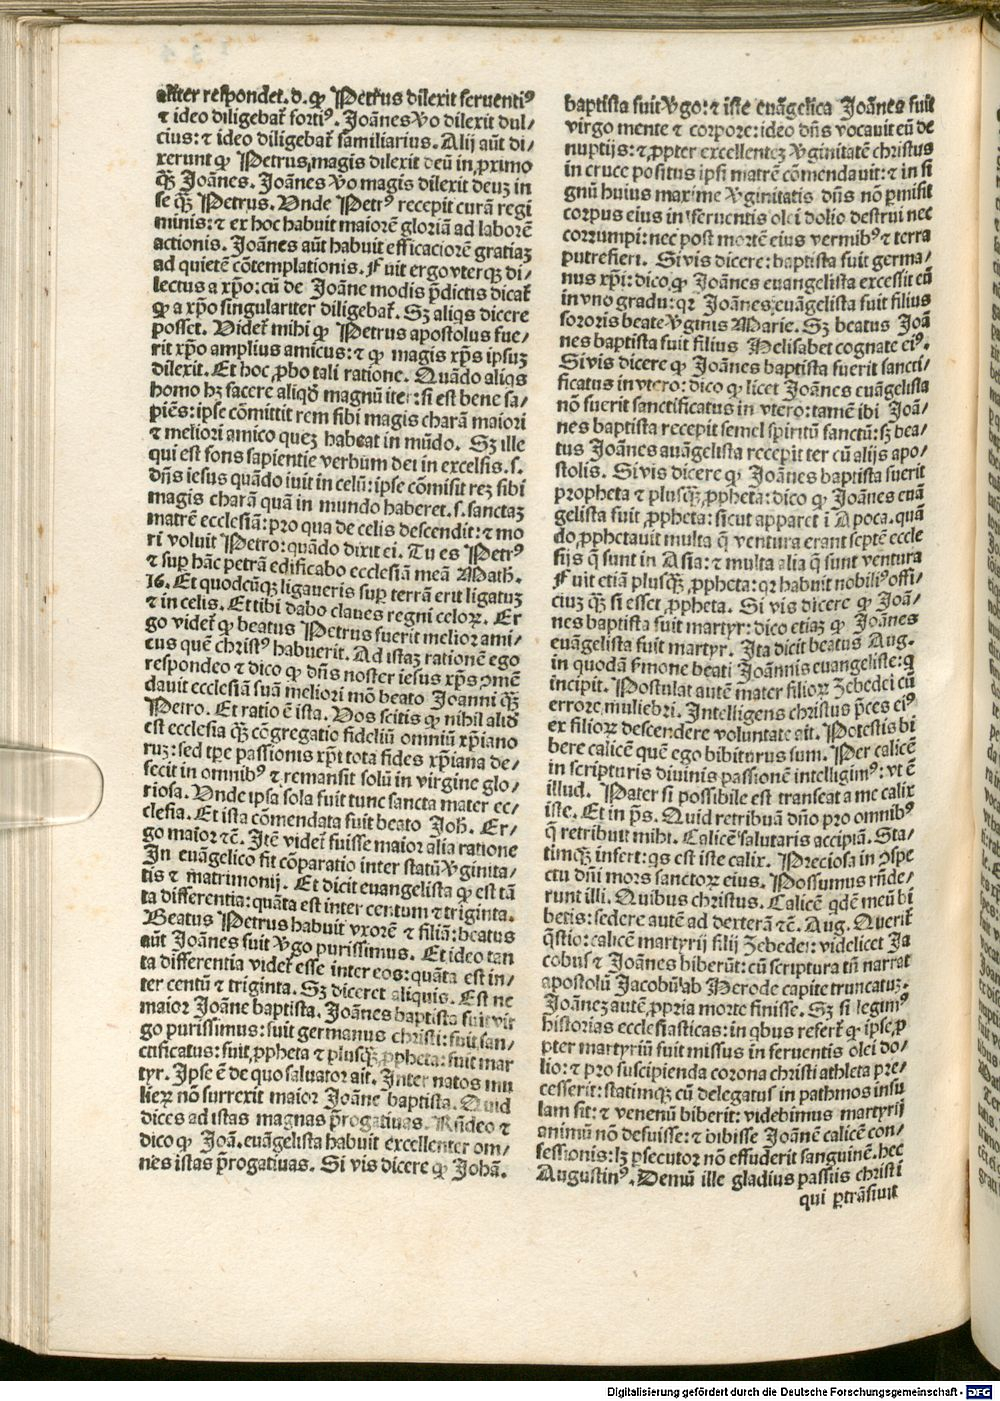 aliter respondet. d. ꝙ Petrus dilexit feruentiꝰ
⁊ ideo diligebat̄ fortiꝰ. Joānes ꝟo dilexit dul⸗
cius: ⁊ ideo diligebat̄ familiarius. Alij aūt di⸗
xerunt ꝙ Petrus magis dilexit deū in ꝓximo
qꝫ̄ Joānes. Joānes ꝟo magis dilexit deuꝫ in
se qꝫ̄ Petrus. Vnde Petrꝰ recepit curā regi
minis: ⁊ ex hoc habuit maiorē gloriā ad laborē
actionis. Joānes aūt habuit efficaciorē gratiaꝫ
ad quietē cōtemplationis. Fuit ergo vterqꝫ di⸗
lectus a xp̄o: cū de Joāne modis p̄dictis dicat̄
ꝙ a xp̄o singulariter diligebat̄. Sꝫ aliqs dicere
posset. Videt̄ mihi ꝙ Petrus apostolus fue⸗
rit xp̄o amplius amicus: ⁊ ꝙ magis xp̄s ipsuꝫ
dilexit. Et hoc ꝓbo tali ratione. Quādo aliqs
homo hꝫ facere aliqd̄ magnū iter: si est bene sa⸗
piēs: ipse cōmittit rem sibi magis charā maiori
⁊ meliori amico queꝫ habeat in mūdo. Sꝫ ille
qui est fons sapientie verbum dei in excelsis. s.
dn̄s iesus quādo iuit in celū: ipse cōmisit reꝫ sibi
magis charā quā in mundo haberet. s. sanctaꝫ
matrē ecclesiā: pro qua de celis descendit: ⁊ mo
ri voluit Petro: quādo dixit ei. Tu es Petrꝰ
⁊ suꝑ hāc petrā edificabo ecclesiā meā Math.
16. Et quodcūqꝫ ligaueris suꝑ terrā erit ligatuꝫ
⁊ in celis. Et tibi dabo claues regni celoꝝ. Er⸗
go videt̄ ꝙ beatus Petrus fuerit melior ami⸗
cus quē christꝰ habuerit. Ad istaꝫ rationē ego
respondeo ⁊ dico ꝙ dn̄s noster iesus xp̄s ꝯmē
dauit ecclesiā suā meliori mō beato Joanni qꝫ̄
Petro. Et ratio ē ista. Vos scitis ꝙ nihil aliđ
est ecclesia qꝫ̄ cōgregatio fideliū omniū xp̄iano
ruꝫ: sed tꝑe passionis xp̄i tota fides xp̄iana de⸗
fecit in omnibꝰ ⁊ remansit solū in virgine glo⸗
riosa. Vnde ipsa sola fuit tunc sancta mater ec⸗
clesia. Et ista cōmendata fuit beato Joh̄. Er⸗
go maior ⁊c̄. Itē videt̄ fuisse maior alia ratione
In euāgelico fit cōparatio inter statū ꝟginita⸗
tis ⁊ matrimonij. Et dicit euangelista ꝙ est tā
ta differentia: quāta est inter centum ⁊ triginta.
Beatus Petrus habuit vxorē ⁊ filiā: beatus
aūt Joānes fuit ꝟgo purissimus. Et ideo tan
ta differentia videt̄ esse inter eos: quāta est in⸗
ter centū ⁊ triginta. Sꝫ diceret aliquis. Est ne
maior Joāne baptista. Joānes baptista fuit vir
go purissimus: fuit germanus christi: fuit san⸗
ctificatus: fuit ꝓpheta ⁊ plusqꝫ̄ ꝓpheta: fuit mar
tyr. Ipse ē de quo saluator ait. Inter natos mu
lieꝝ nō surrexit maior Joāne baptista. Quid
dices ad istas magnas p̄rogatiuas. Rn̄deo ⁊
dico ꝙ Joā. euāgelista habuit excellenter om⸗
nes istas p̄rogatiuas. Si vis dicere ꝙ Johā.
baptista fuit ꝟgo: ⁊ iste euāgelica Joānes fuit
virgo mente ⁊ corpore: ideo dn̄s vocauit eū de
nuptijs: ⁊ ꝓpter excellenteꝫ ꝟginitatē christus
in cruce positus ipsi matrē cōmendauit: ⁊ in si
gnū huius maxime ꝟginitatis dn̄s nō ꝑmisit
corpus eius in feruentis olei dolio destrui nec
corrumpi: nec post mortē eius vermibꝰ ⁊ terra
putrefieri. Si vis dicere: baptista fuit germa⸗
nus xp̄i: dico ꝙ Joānes euangelista excessit eū
in vno gradu: qꝛ Joānes euāgelista fuit filius
sororis beate ꝟginis Marie. Sꝫ beatus Joā
nes baptista fuit filius Helisabet cognate eiꝰ.
Si vis dicere ꝙ Joānes baptista fuerit sancti⸗
ficatus in vtero: dico ꝙ licet Joānes euāgelista
nō fuerit sanctificatus in vtero: tamē ibi Joā⸗
nes baptista recepit semel spiritū sanctū: sꝫ bea⸗
tus Joānes euāgelista recepit ter cū alijs apo⸗
stolis. Si vis dicere ꝙ Joānes baptista fuerit
propheta ⁊ plusqꝫ̄ ꝓpheta: dico ꝙ Joānes euā
gelista fuit ꝓpheta: sicut apparet ī Apoca. quā
do ꝓphetauit multa q̄ ventura erant septē eccle
sijs q̄ sunt in Asia: ⁊ multa alia q̄ sunt ventura
Fuit etiā plusqꝫ̄ ꝓpheta: qꝛ habuit nobiliꝰ offi⸗
ciuꝫ qꝫ̄ si esset ꝓpheta. Si vis dicere ꝙ Joā⸗
nes baptista fuit martyr: dico etiaꝫ ꝙ Joānes
euāgelista fuit martyr. Ita dicit beatus Aug.
in quodā ẜmone beati Joānis euangeliste: q
incipit. Postulat autē mater filioꝝ Zebedei cū
errore muliebri. Intelligens christus p̄ces eiꝰ
ex filioꝝ descendere voluntate ait. Potestis bi
bere calicē quē ego bibiturus sum. Per calicē
in scripturis diuinis passionē intelligimꝰ: vt ē
illud. Pater si possibile est transeat a me calix
iste. Et in p̄s. Quid retribuā dn̄o pro omnibꝰ
q̄ retribuit mihi. Calicē salutaris accipiā. Sta⸗
timqꝫ infert: qs est iste calix. Preciosa in ꝯspe
ctu dn̄i mors sanctoꝝ eius. Possumus rn̄de⸗
runt illi. Quibus christus. Calicē qdē meū bi
betis: sedere autē ad dexterā ⁊c̄. Aug. Querit̄
q̄stio: calicē martyrij filij Zebedei: videlicet Ja
cobus ⁊ Joānes biberūt: cū scriptura tn̄ narrat
apostolū Jacobū ab Herode capite truncatuꝫ.
Joāneꝫ autē ꝓpria morte finisse. Sꝫ si legimꝰ
historias ecclesiasticas: in qbus refert̄ ꝙ ipse ꝓ
pter martyriū fuit missus in feruentis olei do⸗
lio: ⁊ pro suscipienda corona christi athleta pre⸗
cesserit: statimqꝫ cū delegatus in pathmos insu
lam sit: ⁊ venenū biberit: videbimus martyrij
animū nō defuisse: ⁊ bibisse Joānē calicē con⸗
fessionis: lꝫ ꝑsecutor nō effuderit sanguinē. hec
Augustinꝰ. Demū ille gladius passiis christi
qui ꝑtrāsiuit
Digitalisierung gefördert durch die Deutsche Forschungsgemeinschaft - DFG